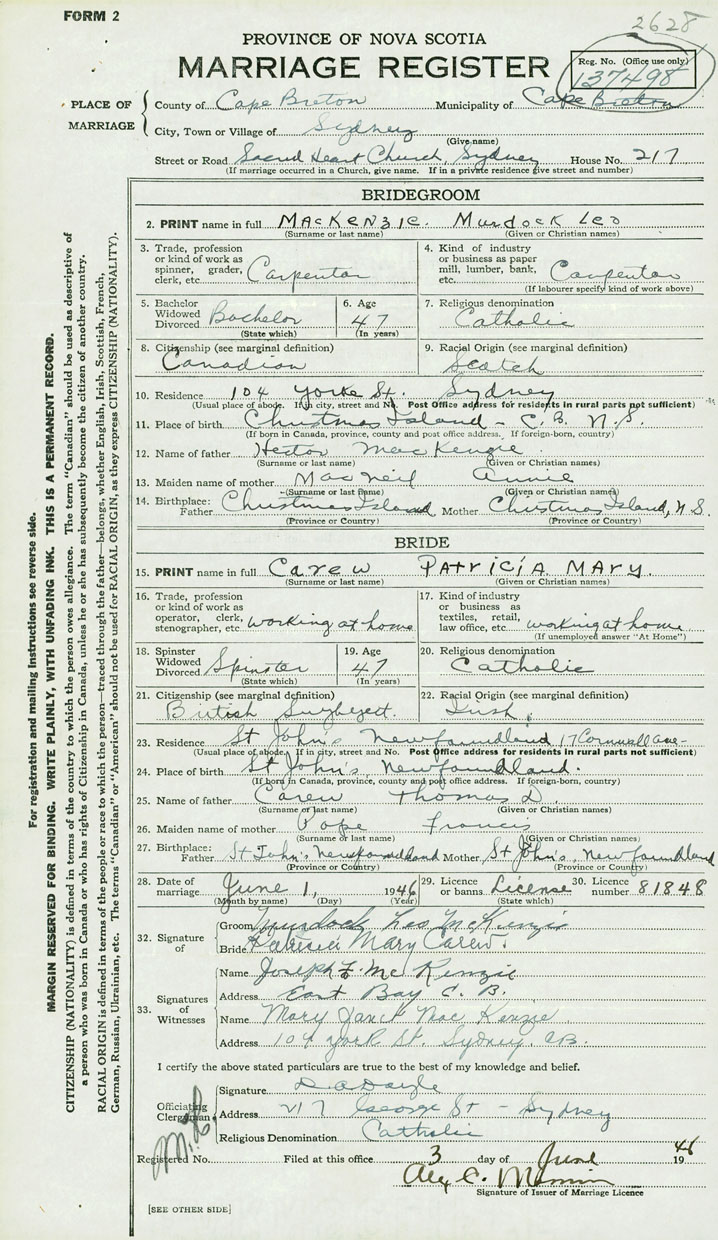 FORM 2
2628
PROVINCE OF NOVA SCOTIA
MARRIAGE REGISTER
Reg. No. (Office use only)
137498
PLACE OF MARRIAGE
County of Cape Breton Municipality of Cape Breton
City, Town or Village of Sydney
(Give name)
Street or Road Sacred Heart Church, Sydney House No. 217
(If marriage occurred in a Church, give name. If in a private residence give street and number)
BRIDEGROOM
2. PRINT name in full MacKenzie. Murdock Leo
(Surname or last name) (Given or Christian names)
3. Trade, profession or kind of work as spinner, grader, clerk, etc. Carpenter
4. Kind of industry or business as paper mill, lumber, bank, etc. Carpenter
(If labourer specify kind of work above)
5. Bachelor Widowed Divorced Bachelor
(State which)
6. Age 47
(In years)
7. Religious denomination
Catholic
8. Citizenship (see marginal definition)
Canadian
9. Racial Origin (see marginal definition)
Scotch
10. Residence 104 Yorke St. Sydney
(Usual place of abode. If in city, street and No. Post Office address for residents in rural parts not sufficient)
11. Place of birth Christmas Island - C.B. N.S.
(If born in Canada, province, county and post office address. If foreign-born, country)
12. Name of father Hector MacKenzie
(Surname or last name) (Given or Christian names)
13. Maiden name of mother MacNeil Annie
(Surname or last name) (Given or Christian names)
14. Birthplace: Father Christmas Island Mother Christmas Island, N.S.
(Province or Country) (Province or Country)
BRIDE
15. PRINT name in full Carew Patricia Mary.
(Surname or last name) (Given or Christian names)
16. Trade, profession or kind of work as operator, clerk, stenographer, etc. working at home
17. Kind of industry or business as textiles, retail, law office, etc. working at home
(If unemployed answer "At Home")
18. Spinster Widowed Divorced Spinster
(State which)
19. Age 47
(In years)
20. Religious denomination
Catholic
21. Citizenship (see marginal definition)
British
22. Racial Origin (see marginal definition)
Irish
23. Residence St John's Newfoundland 17 Cornwall Ave-
(Usual place of abode. If in city, street and No. Post Office address for residents in rural parts not sufficient)
24. Place of birth St John's, Newfoundland.
(If born in Canada, province, county and post office address. If foreign-born, country)
25. Name of father Carew Thomas D.
(Surname or last name) (Given or Christian names)
26. Maiden name of mother Pope Frances
(Surname or last name) (Given or Christian names)
27. Birthplace: Father St John's Newfoundland Mother St John's. Newfoundland
(Province or Country) (Province or Country)
28. Date of marriage June 1, 1946
(Month by name) (Day) (Year)
29. Licence or banns License
(State which)
30. Licence number 81848
32. Signature of
Groom Murdock Leo McKenzie
Bride Patricia Mary Carew.
33. Signatures of Witnesses
Name Joseph F. McKenzie
Address East Bay C.B.
Name Mary Janet MacKenzie
Address 104 York St. Sydney C.B.
I certify the above stated particulars are true to the best of my knowledge and belief.
Officiating Clergyman
Signature D.A. Doyle
Address 217 George St - Sydney
Religious Denomination Catholic
Registered No. Filed at this office 3 day of June 1946
Signature of Issuer of Marriage Licence
[SEE OTHER SIDE]
For registration and mailing instructions see reverse side.
MARGIN RESERVED FOR BINDING. WRITE PLAINLY, WITH UNFADING INK. THIS IS A PERMANENT RECORD.
CITIZENSHIP (NATIONALITY) is defined in terms of the country to which the person owes allegiance. The term "Canadian" should be used as descriptive of
a person who was born in Canada or who has rights of Citizenship in Canada, unless he or she has subsequently become the citizen of another country.
RACIAL ORIGIN is defined in terms of the people or race to which the person—traced through the father—belongs, whether English, Irish, Scottish, French,
German, Russian, Ukrainian, etc. The terms "Canadian" or "American" should not be used for RACIAL ORIGIN, as they express CITIZENSHIP (NATIONALITY).